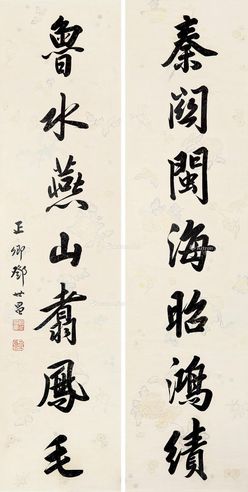 秦関閩海昭鴻績
魯水燕山翥鳳毛
正卿鄧世昌